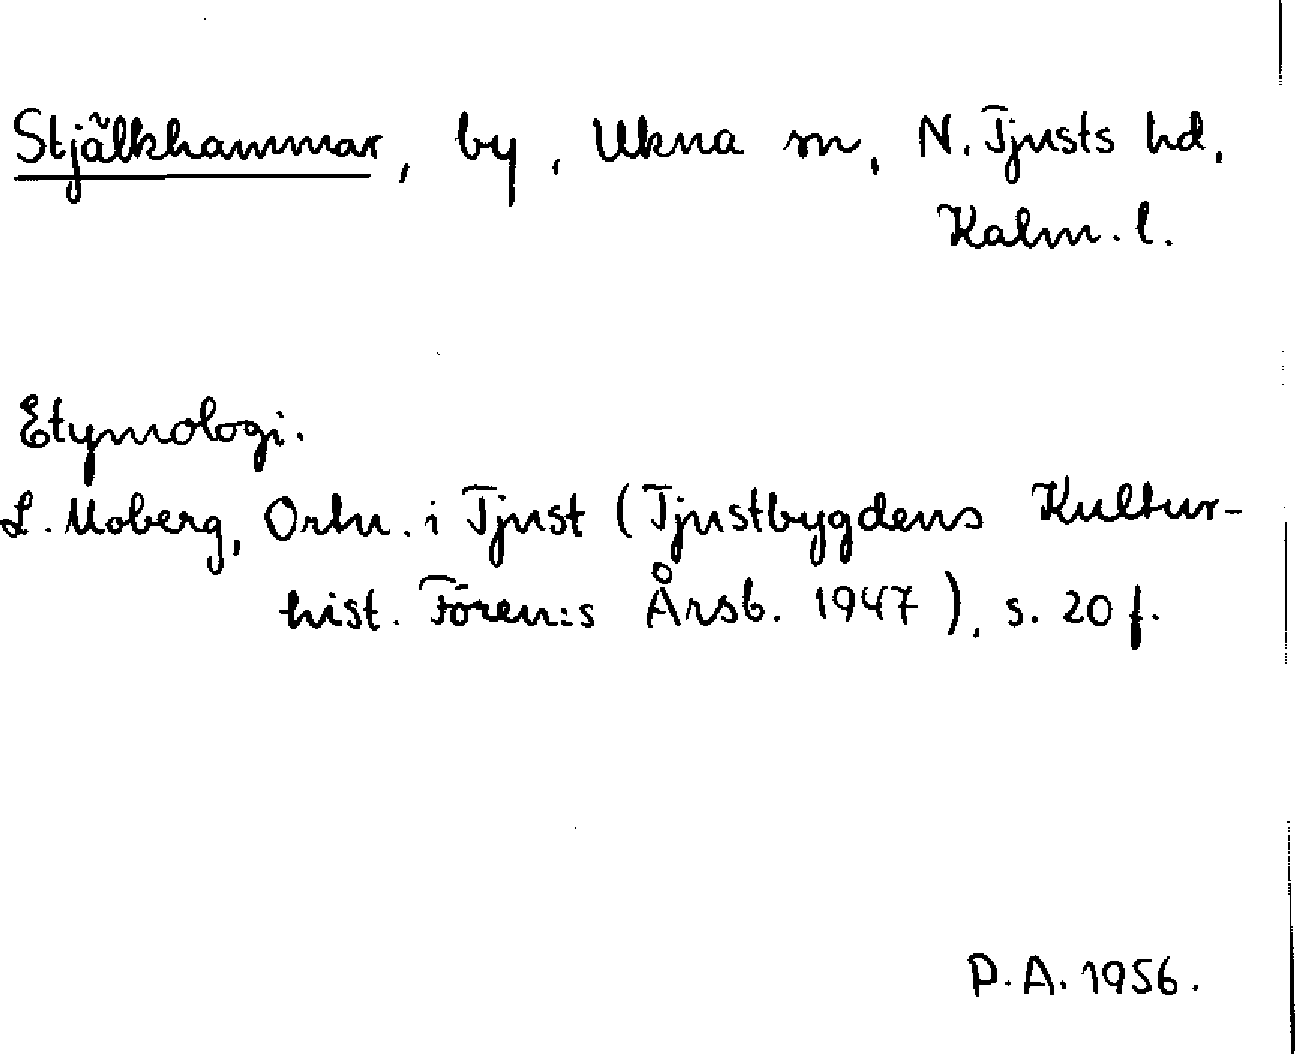 Stjälkhammar, by, Ukna sn, N. Tjusts hd,
Kalm. l.
Etymologi.
L. Moberg, Ortn. i Tjust (Tjustbygdens Kultur-
hist. Fören:s Årsb. 1947), s. 20 f.
P. A. 1956.